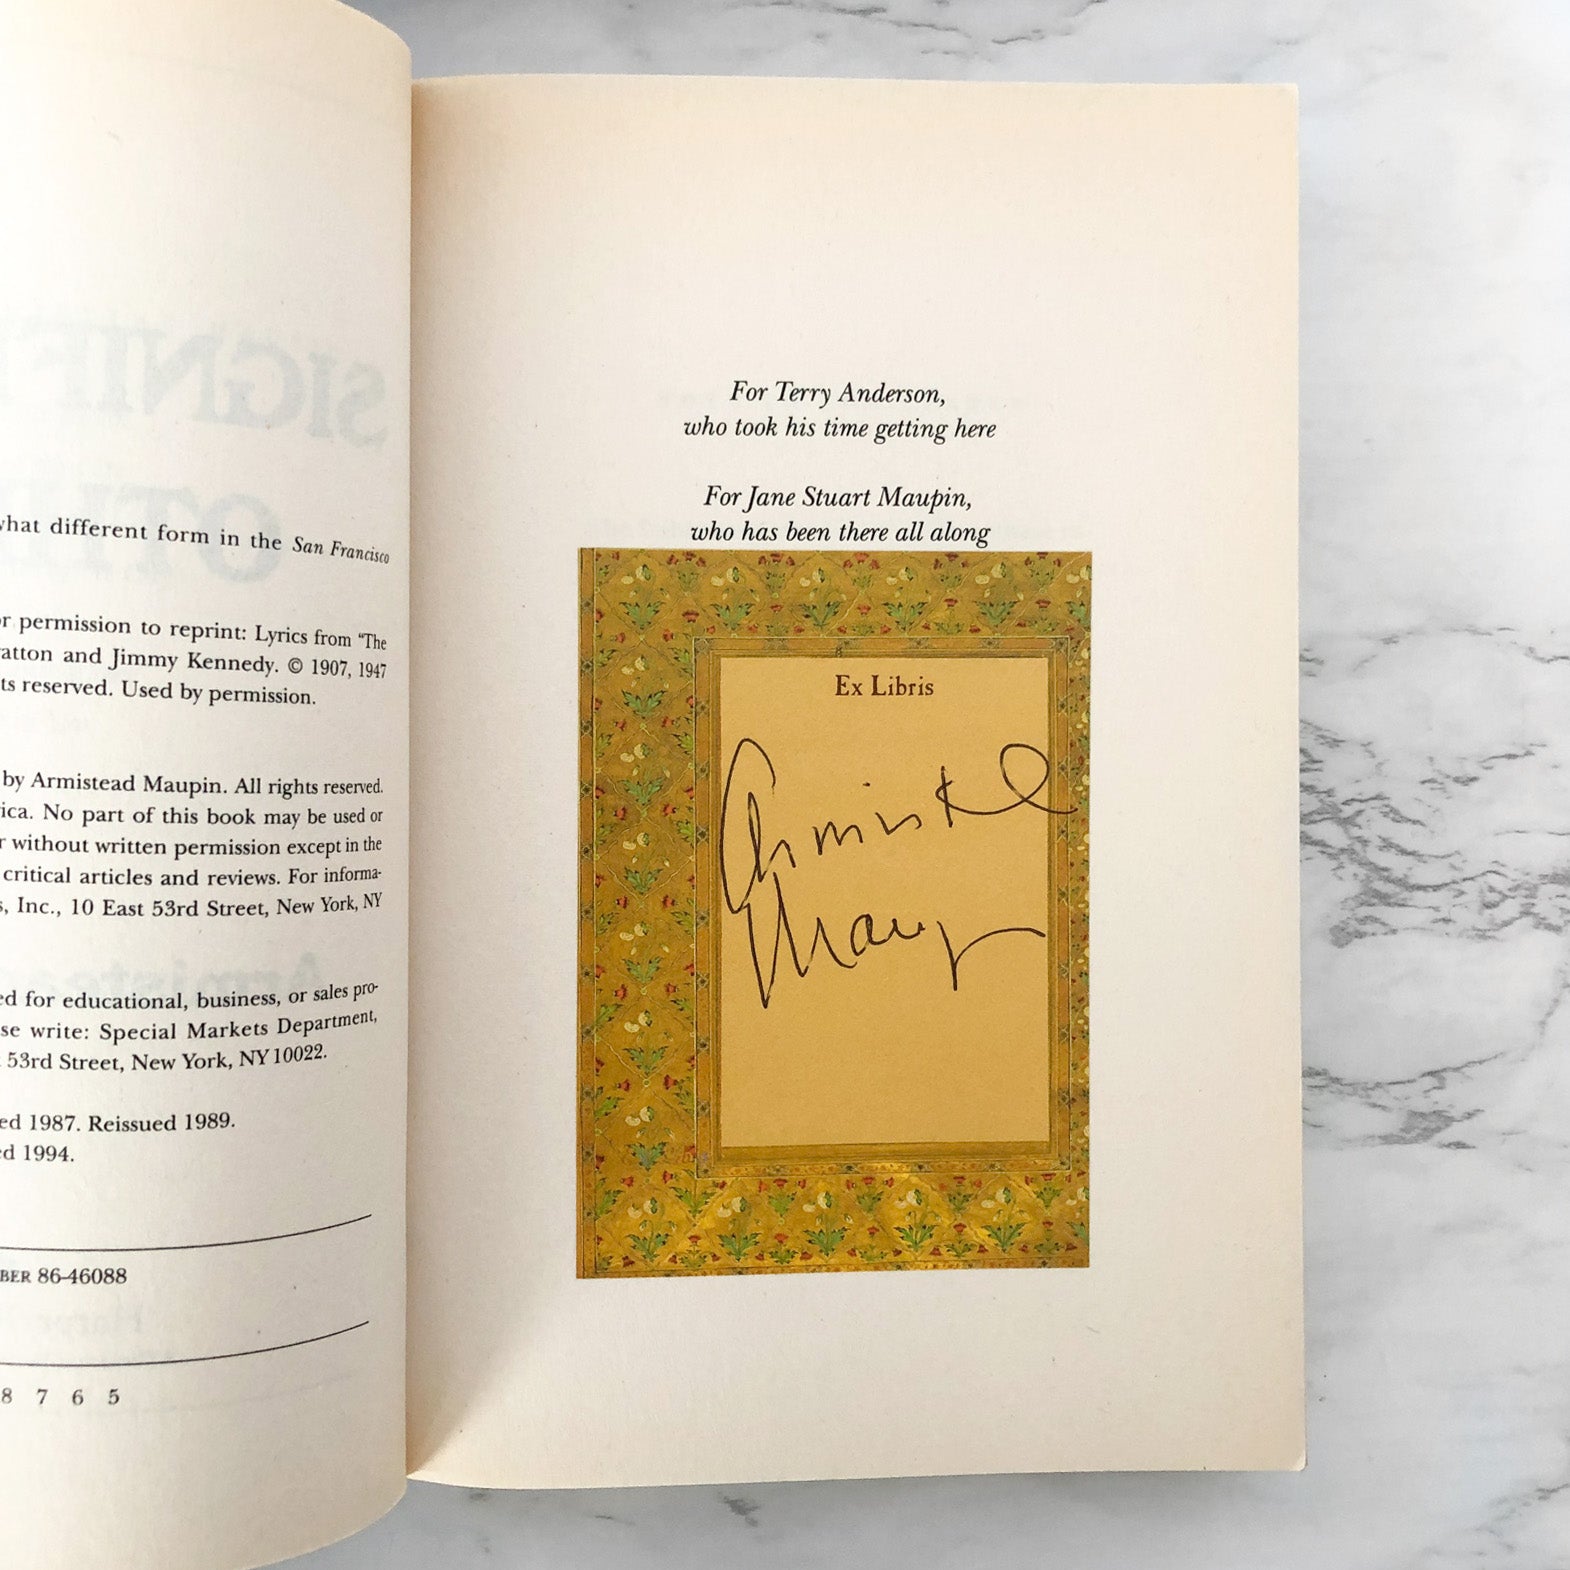 SIGNIF
what different form in the San Francisco
or permission to reprint: Lyrics from “The
atton and Jimmy Kennedy. © 1907, 1947
ts reserved. Used by permission.
by Armistead Maupin. All rights reserved.
ica. No part of this book may be used or
r without written permission except in the
critical articles and reviews. For informa-
s, Inc., 10 East 53rd Street, New York, NY
ed for educational, business, or sales pro-
se write: Special Markets Department,
53rd Street, New York, NY 10022.
ed 1987. Reissued 1989.
ed 1994.
BER 86-46088
8 7 6 5
For Terry Anderson,
who took his time getting here
For Jane Stuart Maupin,
who has been there all along
Ex Libris
Armistead
Maupin